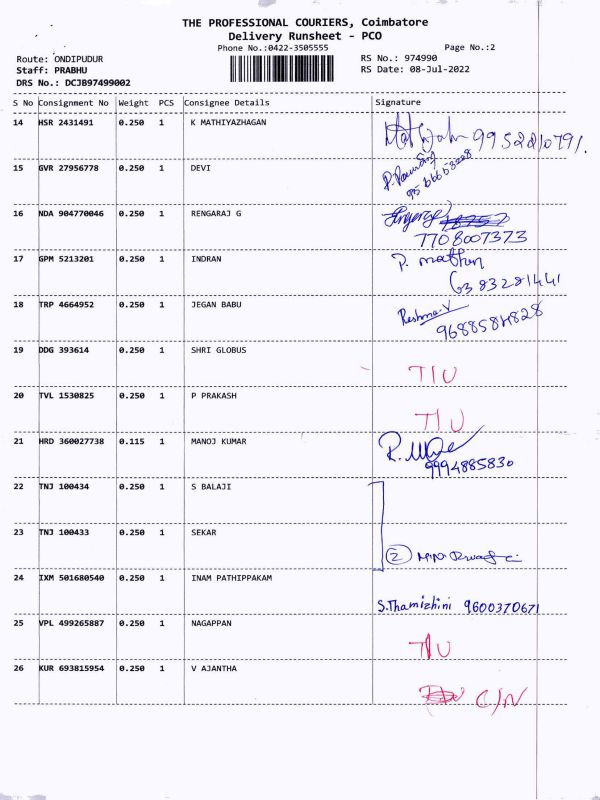 THE PROFESSIONAL COURIERS, Coimbatore
Delivery Runsheet - PCO
Phone No.:0422-3505555
Page No.:2
Route: ONDIPUDUR
RS No.: 974990
Staff: PRABHU
RS Date: 08-Jul-2022
DRS No.: DCJB97499002
S No Consignment No Weight PCS Consignee Details Signature
14 HSR 2431491 0.250 1 K MATHIYAZHAGAN
15 GVR 27956778 0.250 1 DEVI
16 NDA 904770046 0.250 1 RENGARAJ G
7708007373
17 GPM 5213201 0.250 1 INDRAN P. mathan
6383281441
18 TRP 4664952 0.250 1 JEGAN BABU Reshma.V
9688584828
19 DDG 393614 0.250 1 SHRI GLOBUS
TIU
20 TVL 1530825 0.250 1 P PRAKASH
TIU
21 HRD 360027738 0.115 1 MANOJ KUMAR
9994885830
22 TNJ 100434 0.250 1 S BALAJI
23 TNJ 100433 0.250 1 SEKAR
2
24 IXM 501680540 0.250 1 INAM PATHIPPAKAM
S.Thamizhini 9600370671
25 VPL 499265887 0.250 1 NAGAPPAN
TIU
26 KUR 693815954 0.250 1 V AJANTHA
C/N